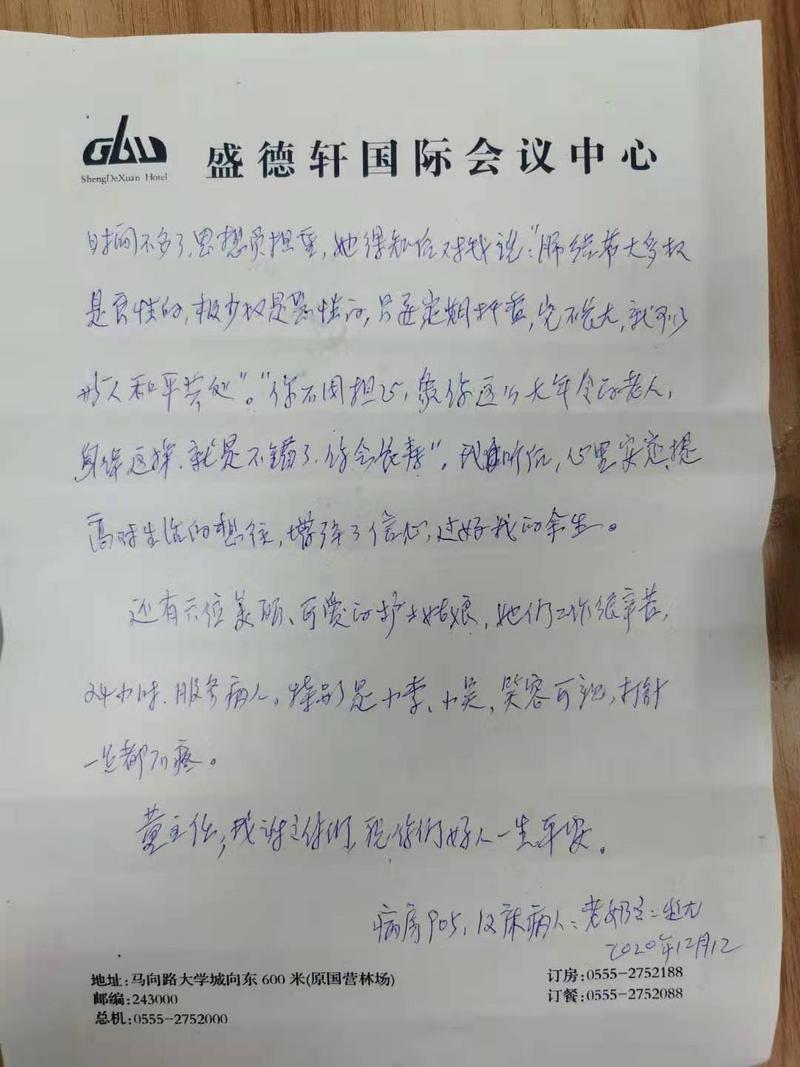 GBD
ShengDeXuan Hotel
盛德轩国际会议中心
时间不多了,思想负担重,她得知后对我说:"肺结节大多数
是良性的,极少数是恶性的,只要定期抽查,它不长大,就可以
与人和平共处"。"你不用担心,象你这么大年令的老人,
身体这样,就是不错了,你会长寿"。我听后,心里安定,提
高对生活的想往,增强了信心,过好我的余生。
还有六位美丽、可爱的护士姑娘,她们工作很辛苦,
24小时、服务病人,特别是小李、小吴,笑容可鞠,打针
一点都不疼。
董主任,我谢谢你们,祝你们好人一生平安。
病房905, 病人:老奶
2020年12月12
地址:马向路大学城向东 600 米(原国营林场)
邮编:243000
总机:0555-2752000
订房:0555-2752188
订餐:0555-2752088